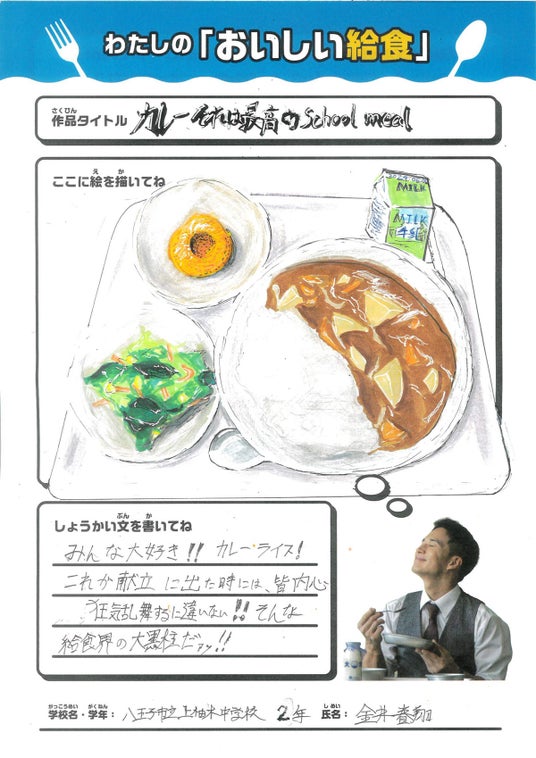 わたしの「おいしい給食」
さくひん
作品タイトル カレーそれは最高のSchool meal
え か
ここに絵を描いてね
MILK
MILK
牛乳
ぶん か
しょうかい文を書いてね
みんな大好き!! カレーライス!
これが献立に出た時には、皆内心
狂気乱舞するに違いない!! そんな
給食界の大黒柱だァッ!!
がっこうめい がくねん しめい
学校名・学年: 八王子市立上柚木中学校 2年 氏名: 金井春翔